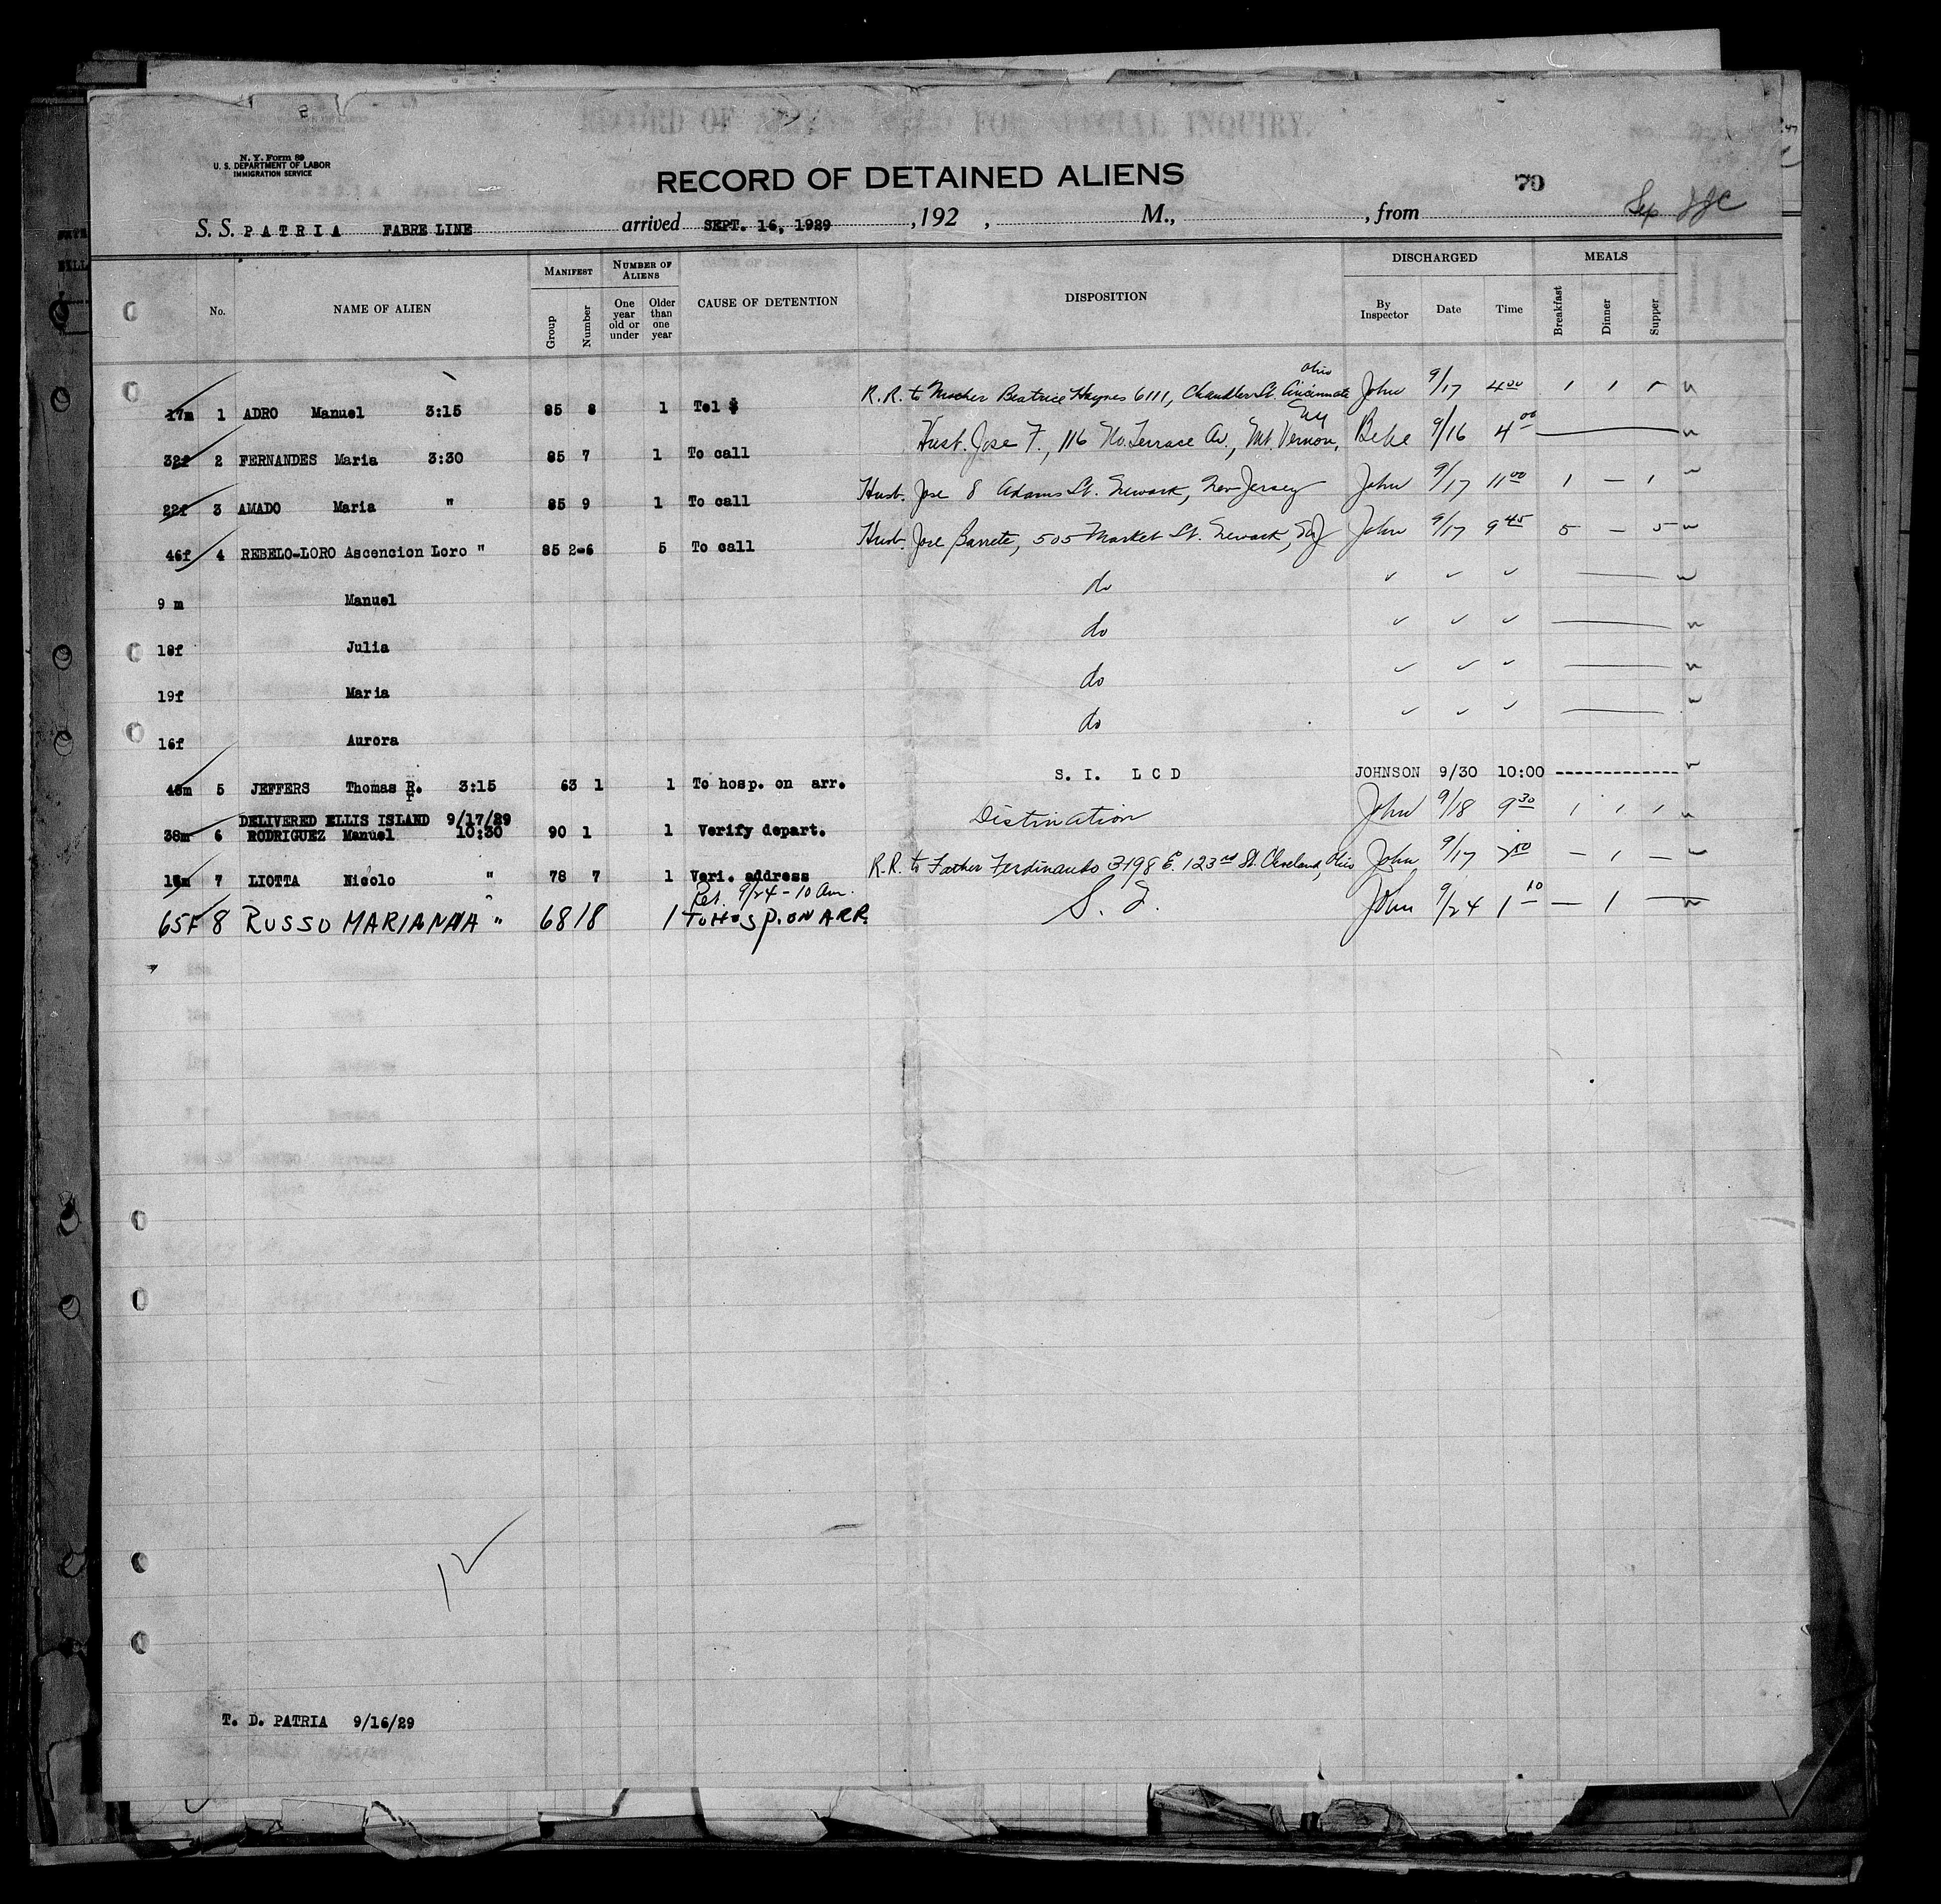 RECORD OF ALIENS HELD FOR SPECIAL INQUIRY.
N. Y. Form 89
U. S. DEPARTMENT OF LABOR
IMMIGRATION SERVICE
RECORD OF DETAINED ALIENS
70
S. S. PATRIA FABRE LINE arrived SEPT. 16, 1929 , 192 , M., , from
No. NAME OF ALIEN MANIFEST NUMBER OF ALIENS CAUSE OF DETENTION DISPOSITION DISCHARGED MEALS
Group Number One year old or under Older than one year By Inspector Date Time Breakfast Dinner Supper
17m 1 ADRO Manuel 3:15 85 8 1 Tel $ R.R. to Mother Beatrice Haynes 6111, Chandler St. Cincinnati Ohio John 9/17 4 00 1 1 1
32f 2 FERNANDES Maria 3:30 85 7 1 To call Husb. Jose F., 116 No. Terrace Av., Mt. Vernon, NY 9/16 4 00
22f 3 AMADO Maria " 85 9 1 To call Husb. Jose 8 Adams St. Newark, New Jersey John 9/17 11 00 1 — 1
46f 4 REBELO-LORO Ascencion Loro " 85 2-6 5 To call Husb. Jose Barrete, 505 Market St. Newark, NJ John 9/17 9 45 5 — 5
9 m Manuel do ✓ ✓ ✓
18f Julia do ✓ ✓ ✓
19f Maria do ✓ ✓ ✓
16f Aurora do ✓ ✓ ✓
48m 5 JEFFERS Thomas R. 3:15 63 1 1 To hosp. on arr. S. I. L C D JOHNSON 9/30 10:00 --------------
DELIVERED ELLIS ISLAND 9/17/29
38m 6 RODRIGUEZ Manuel 10:30 90 1 1 Verify depart. Distination John 9/18 9 30 1 1 1
7 LIOTTA Nicolo " 78 7 1 Veri. address R.R. to Father Ferdinando 3198 E. 123rd St. Cleveland, Ohio John 9/17 — 1 —
Ret. 9/24 - 10 Am.
65F 8 RUSSO MARIANNA " 68 18 1 To HOSP. ON ARR. S. I. John 9/24 1 10 — 1 —
12
T. D. PATRIA 9/16/29